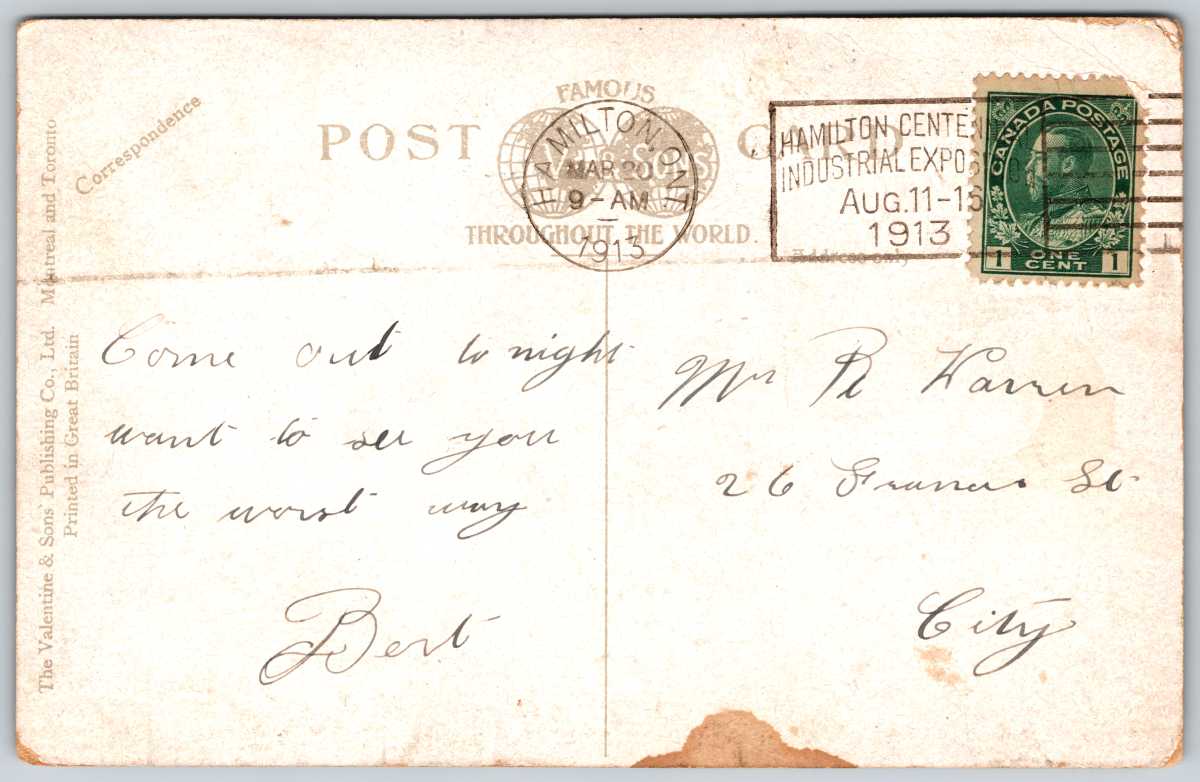 Correspondence
POST CARD
FAMOUS
THROUGHOUT THE WORLD.
HAMILTON, ONT
MAR 20
9-AM
1913
HAMILTON CENTEN
INDUSTRIAL EXPOSITIO
AUG. 11-16
1913
CANADA POSTAGE
1 ONE CENT 1
Address only
The Valentine & Sons' Publishing Co., Ltd. Montreal and Toronto
Printed in Great Britain
Come out to night
want to see you
the worst way
Bert
Mrs R Warren
26 Francis St
City